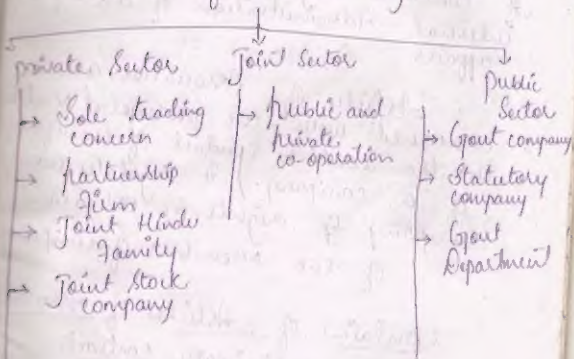 private Sector
Sole trading
concern
partnership
firm
Joint Hindu
Family
Joint Stock
company
Joint Sector
public and
private
co-operation
Public
Sector
Govt company
Statutory
company
Govt
Department